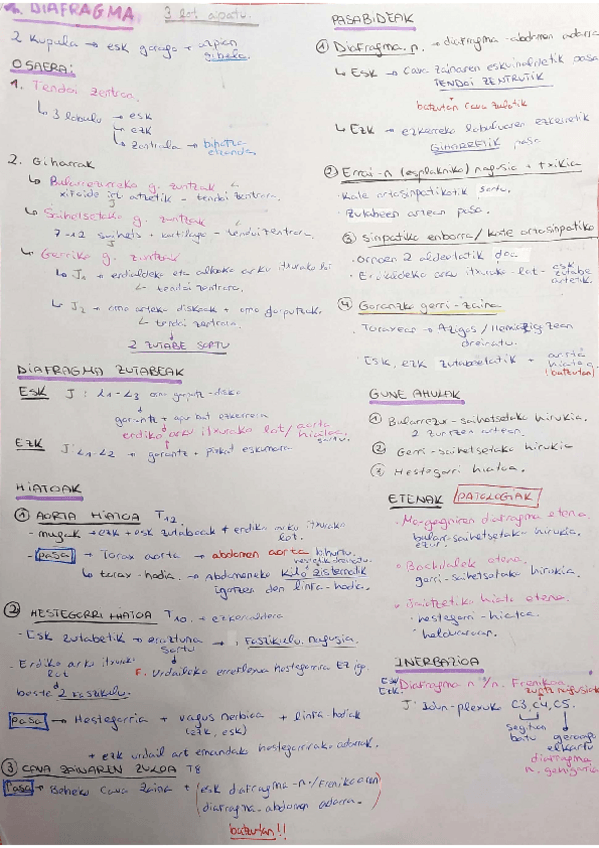 DIAFRAGMA: 3 lot aipatu.
2 Kupula → esk garago + azpian gibela.
OSAERA:
1. Tendoi zentrala.
↳ 3 lobulu → esk
→ ezk
→ zentrala → bihotza
2. Giharrak
↳ Bularrezurreko g. zuntzak
xifoide - tendoi zentrora.
↳ Saihetsetako g. zuntzak
7-12 saihets + kartilago - tendoi zentrora.
↳ Gerriko g. zuntzak
↳ J1 → erdialdeko eta alboko arku itxurako lot
↳ tendoi zentrora.
↳ J2 → orno arteko diskoak + orno gorputzak
↳ tendoi zentrora.
2 ZUTABE SORTU
DIAFRAGMA ZUTABEAK
ESK J: L1-L3 orno gorputz-disko
gorantz + apur bat ezkerrera
erdiko arku itxurako lot / aorta hiatoa
EZK J: L1-L2 → gorantz + pixkat eskumara
HIATOAK
① AORTA HIATOA T12
- mugak → ezk + esk zutabeak + erdiko arku itxurako lot.
- pasa → Torax aorta → abdomen aorta bihurtu.
↳ torax-hodia. → Abdomeneko kilo zisternatik igotzen den linfa-hodia.
② HESTEGORRI HIATOA T10. + ezkerraldera
- Esk zutabetik → eraztuna sortu → 1 Faszikulu nagusia.
- Erdiko arku itxurako lot F. Urdaileko errefluxua hestegorrira EZ igo.
beste 2 faszikulu.
pasa → Hestegorria + vagus nerbioa + linfa-hodiak
(ezk, esk)
+ ezk urdail art emandako hestegorrirako adarrak.
③ CAVA ZAINAREN ZULOA T8
Pasa → Beheko cava zaina + (esk diafragma-n./Frenikoaren
diafragma-abdomen adarra.)
batzutan!!
PASABIDEAK
① Diafragma n. → diafragma-abdomen adarra
↳ ESK → Cava zainaren eskuinaldetik pasa
TENDOI ZENTRUTIK
batzutan cava zulotik
↳ EZK → ezkerreko lobuluaren ezkerretik
GIHARRETIK pasa
② Errai-n (esplakniko) nagusia + txikia
· Kate ortosinpatikotik sortu.
· Zutabeen artean pasa.
③ Sinpatiko enborra / kate ortosinpatiko
· Ornoen 2 aldeetatik doa
· Erdialdeko arku itxurako lot - esk zutabe artetik.
④ Goranzko gerri-zaina
· Toraxean → Azigos / Hemiazigoen
drenatu.
· Esk, ezk zutabeetatik + aorta hiatoa (batzutan)
GUNE AHULAK
① Bularrezur-saihetsetako hirukia.
2 zuntzen artean.
② Gerri-saihetsetako hirukia
③ Hestegorri hiatoa.
ETENAK PATOLOGIAK
· Morgagniren diafragma etena.
bularrezur-saihetsetako hirukia.
· Bochdalek etena.
gerri-saihetsetako hirukia.
· Jaiotzetiko hiato etena.
· hestegorri-hiatoa.
· helduaroan.
INERBAZIOA
Esk Ezk Diafragma n / n. Frenikoa
zuntz nagusiak
J: lepo-plexuko C3, C4, C5.
diafragma
n. gehigarria